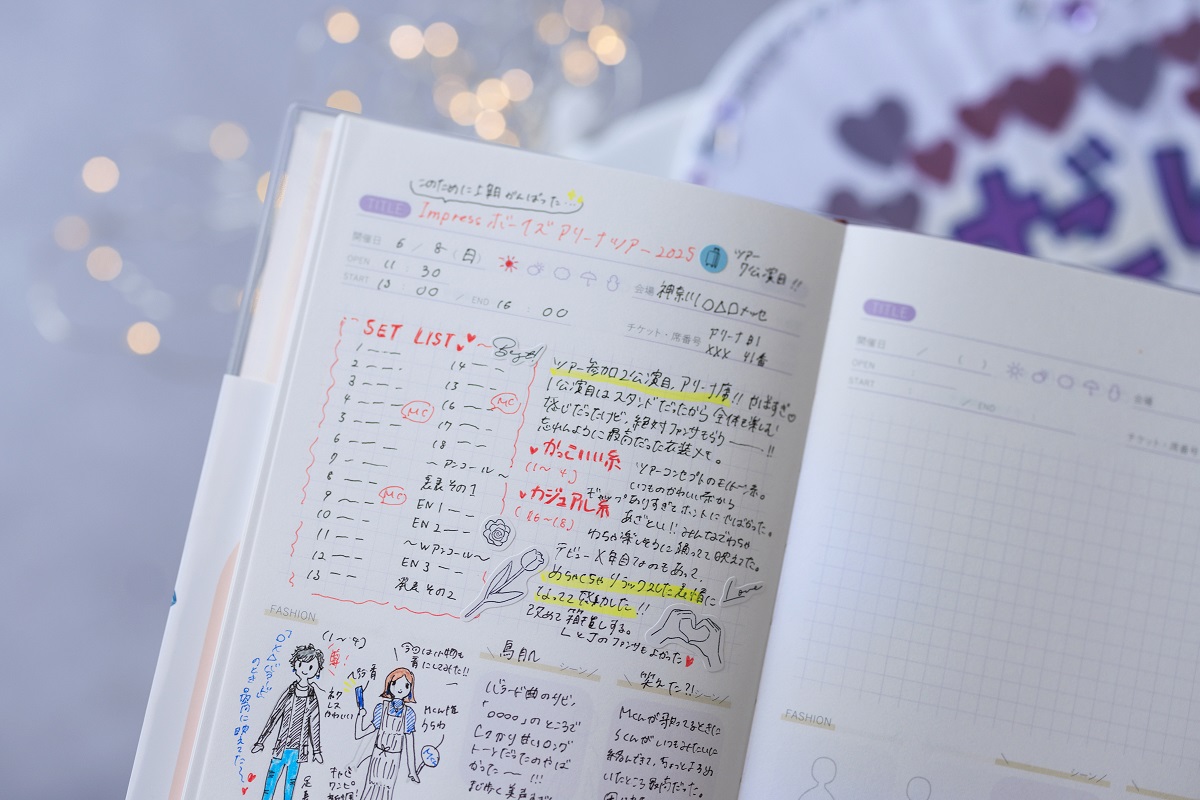 このために1週間がんばった…
TITLE Impress ボーイズ アリーナツアー 2025
ツアー
7公演目!!
開催日 6/8(日)
OPEN 11:30
START 13:00 / END 16:00
会場 神奈川○△□メッセ
チケット・席番号 アリーナ B1
XXX 41番
SET LIST
1
2
3
4 MC
5
6
7
8
9 MC
10
11
12
13
14
15
16 MC
17
18
〜アンコール〜
発表その1
EN 1
EN 2
〜Wアンコール〜
EN 3
発表 その2
ツアー参加2公演目、アリーナ席!! やばすぎ♡
1公演目はスタンドだったから 全体を楽しむ
感じだったけど、絶対ファンサもらう――!!
忘れんように最高だった衣装メモ。
♥かっこいい系
(1〜4)
ツアーコンセプトのモノトーン系。
いつものかわいい系から
ギャップありすぎてホントにやばかった。
♥カジュアル系
(16〜18)
あざとい!! みんなでわちゃ
わちゃ楽しそうに踊ってて映えてた。
デビューX年目なのもあって、
めちゃくちゃ リラックスした表情に
なってて感動した!!
改めて箱推しする。
LとJのファンサもよかった♥
Love
FASHION
(1〜4)
ネク
レス
かわいい
ペンライト
今回は小物も
青にしてみた!!
Mくん
うちわ
キャミ
ワンピ
鳥肌 シーン
バラード曲のサビ、
「○○○○」のところで
Cかり甘いロング
トーンだったのやば
かった〜!!!
笑えた?! シーン
Mくんが歌ってるときに
Sくんがいつもみたいに
絡んできて、ちょっとよろめ
いたところ最高だった。
TITLE
開催日 / ( )
OPEN :
START : / END :
会場
チケット・席番号
FASHION
シーン
ざし